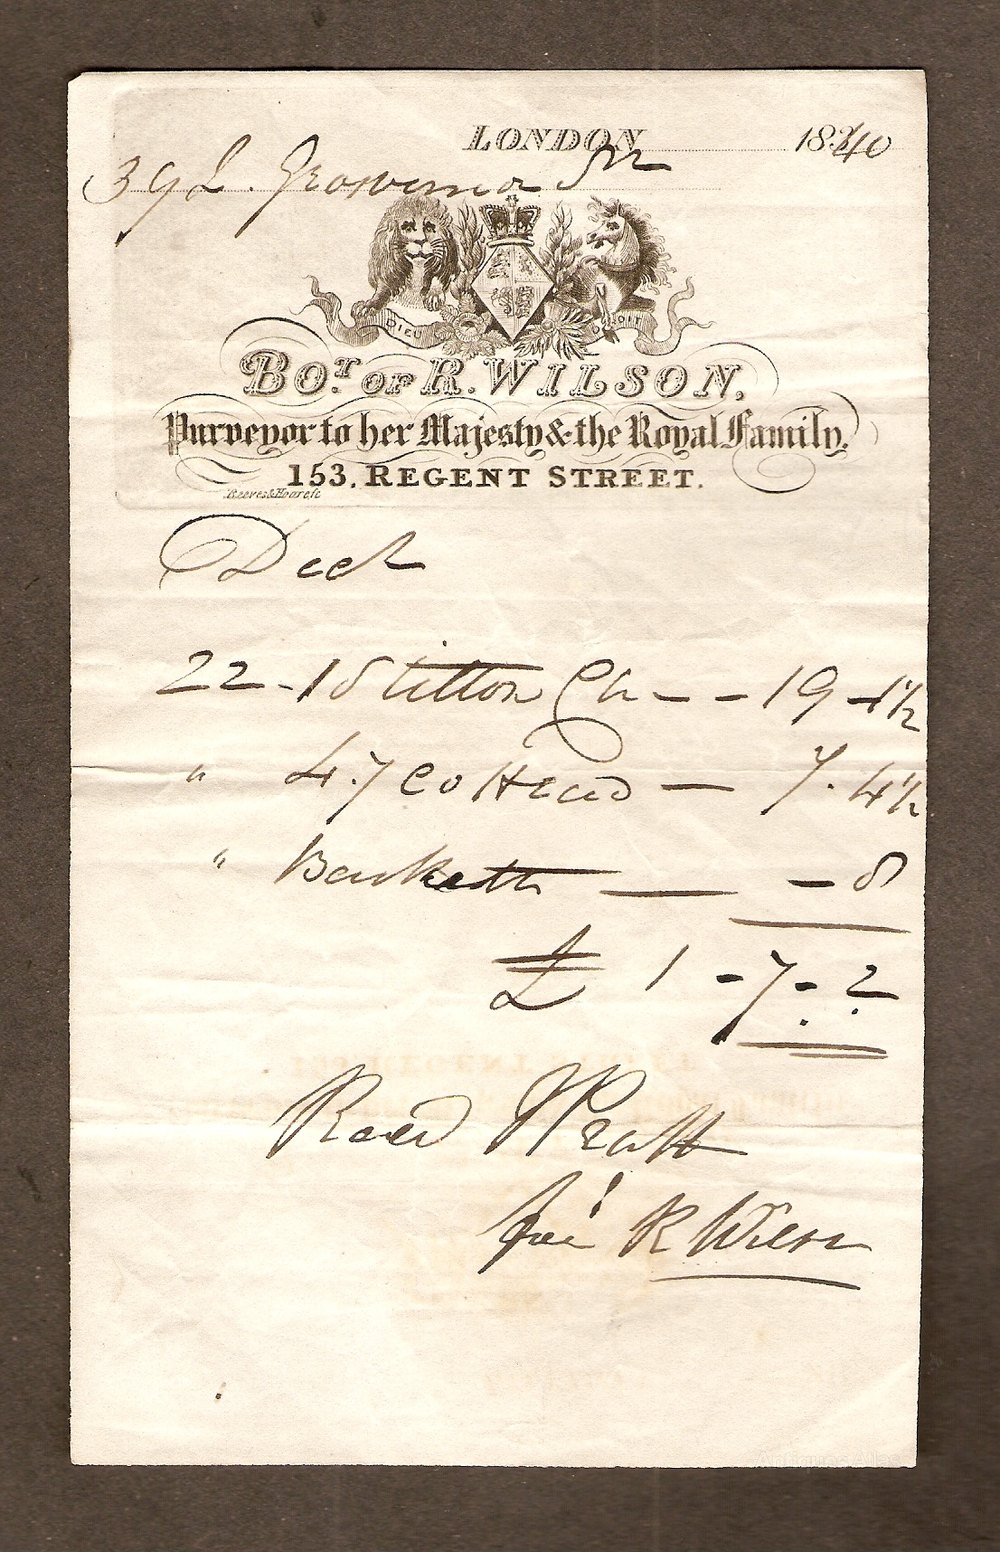 LONDON 1840
39 L. Grosvenor Str
DIEU DROIT
BO.T OF R. WILSON,
Purveyor to her Majesty & the Royal Family,
153, REGENT STREET.
Reeves & Hoare sc
Decr
22 - 18 Stilton Ch - - 19 - 1½
" 4.7 Co Head - 7. 4½
" Baskett - 8
£ 1 - 7 - 2
Recd Pratt
for R Wilson